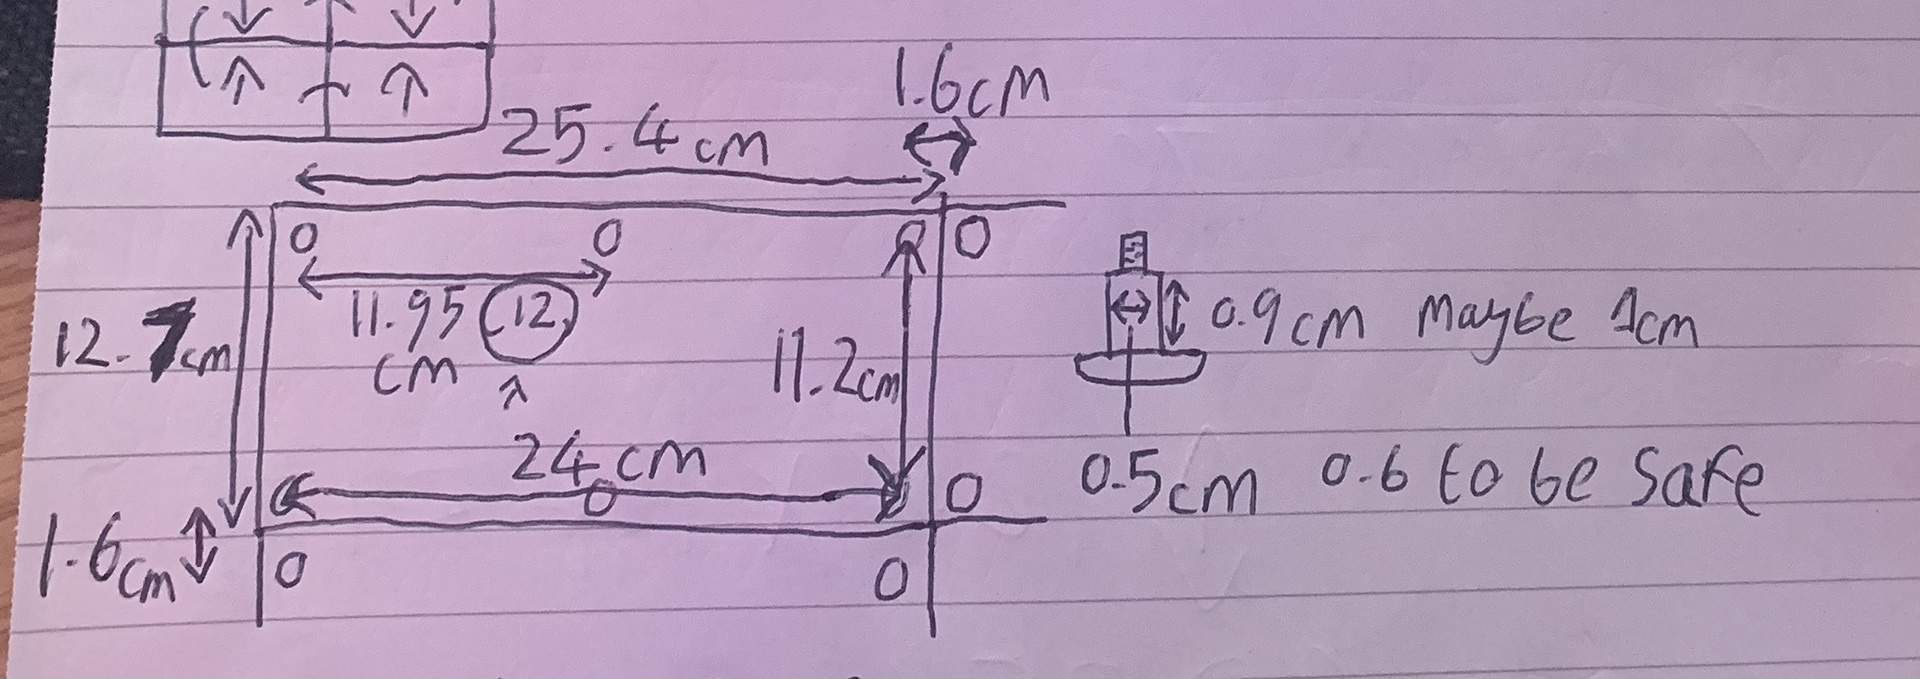 1.6cm
25.4cm
O O O O
11.95 12
cm
12.7cm
11.2cm
0.9cm maybe 1cm
24cm
O O O O
0.5cm 0.6 to be safe
1.6cm
O O